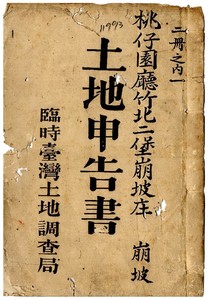 二冊之內一
桃仔園廳竹北二堡崩坡庄 崩坡
土地申告書
臨時臺灣土地調查局